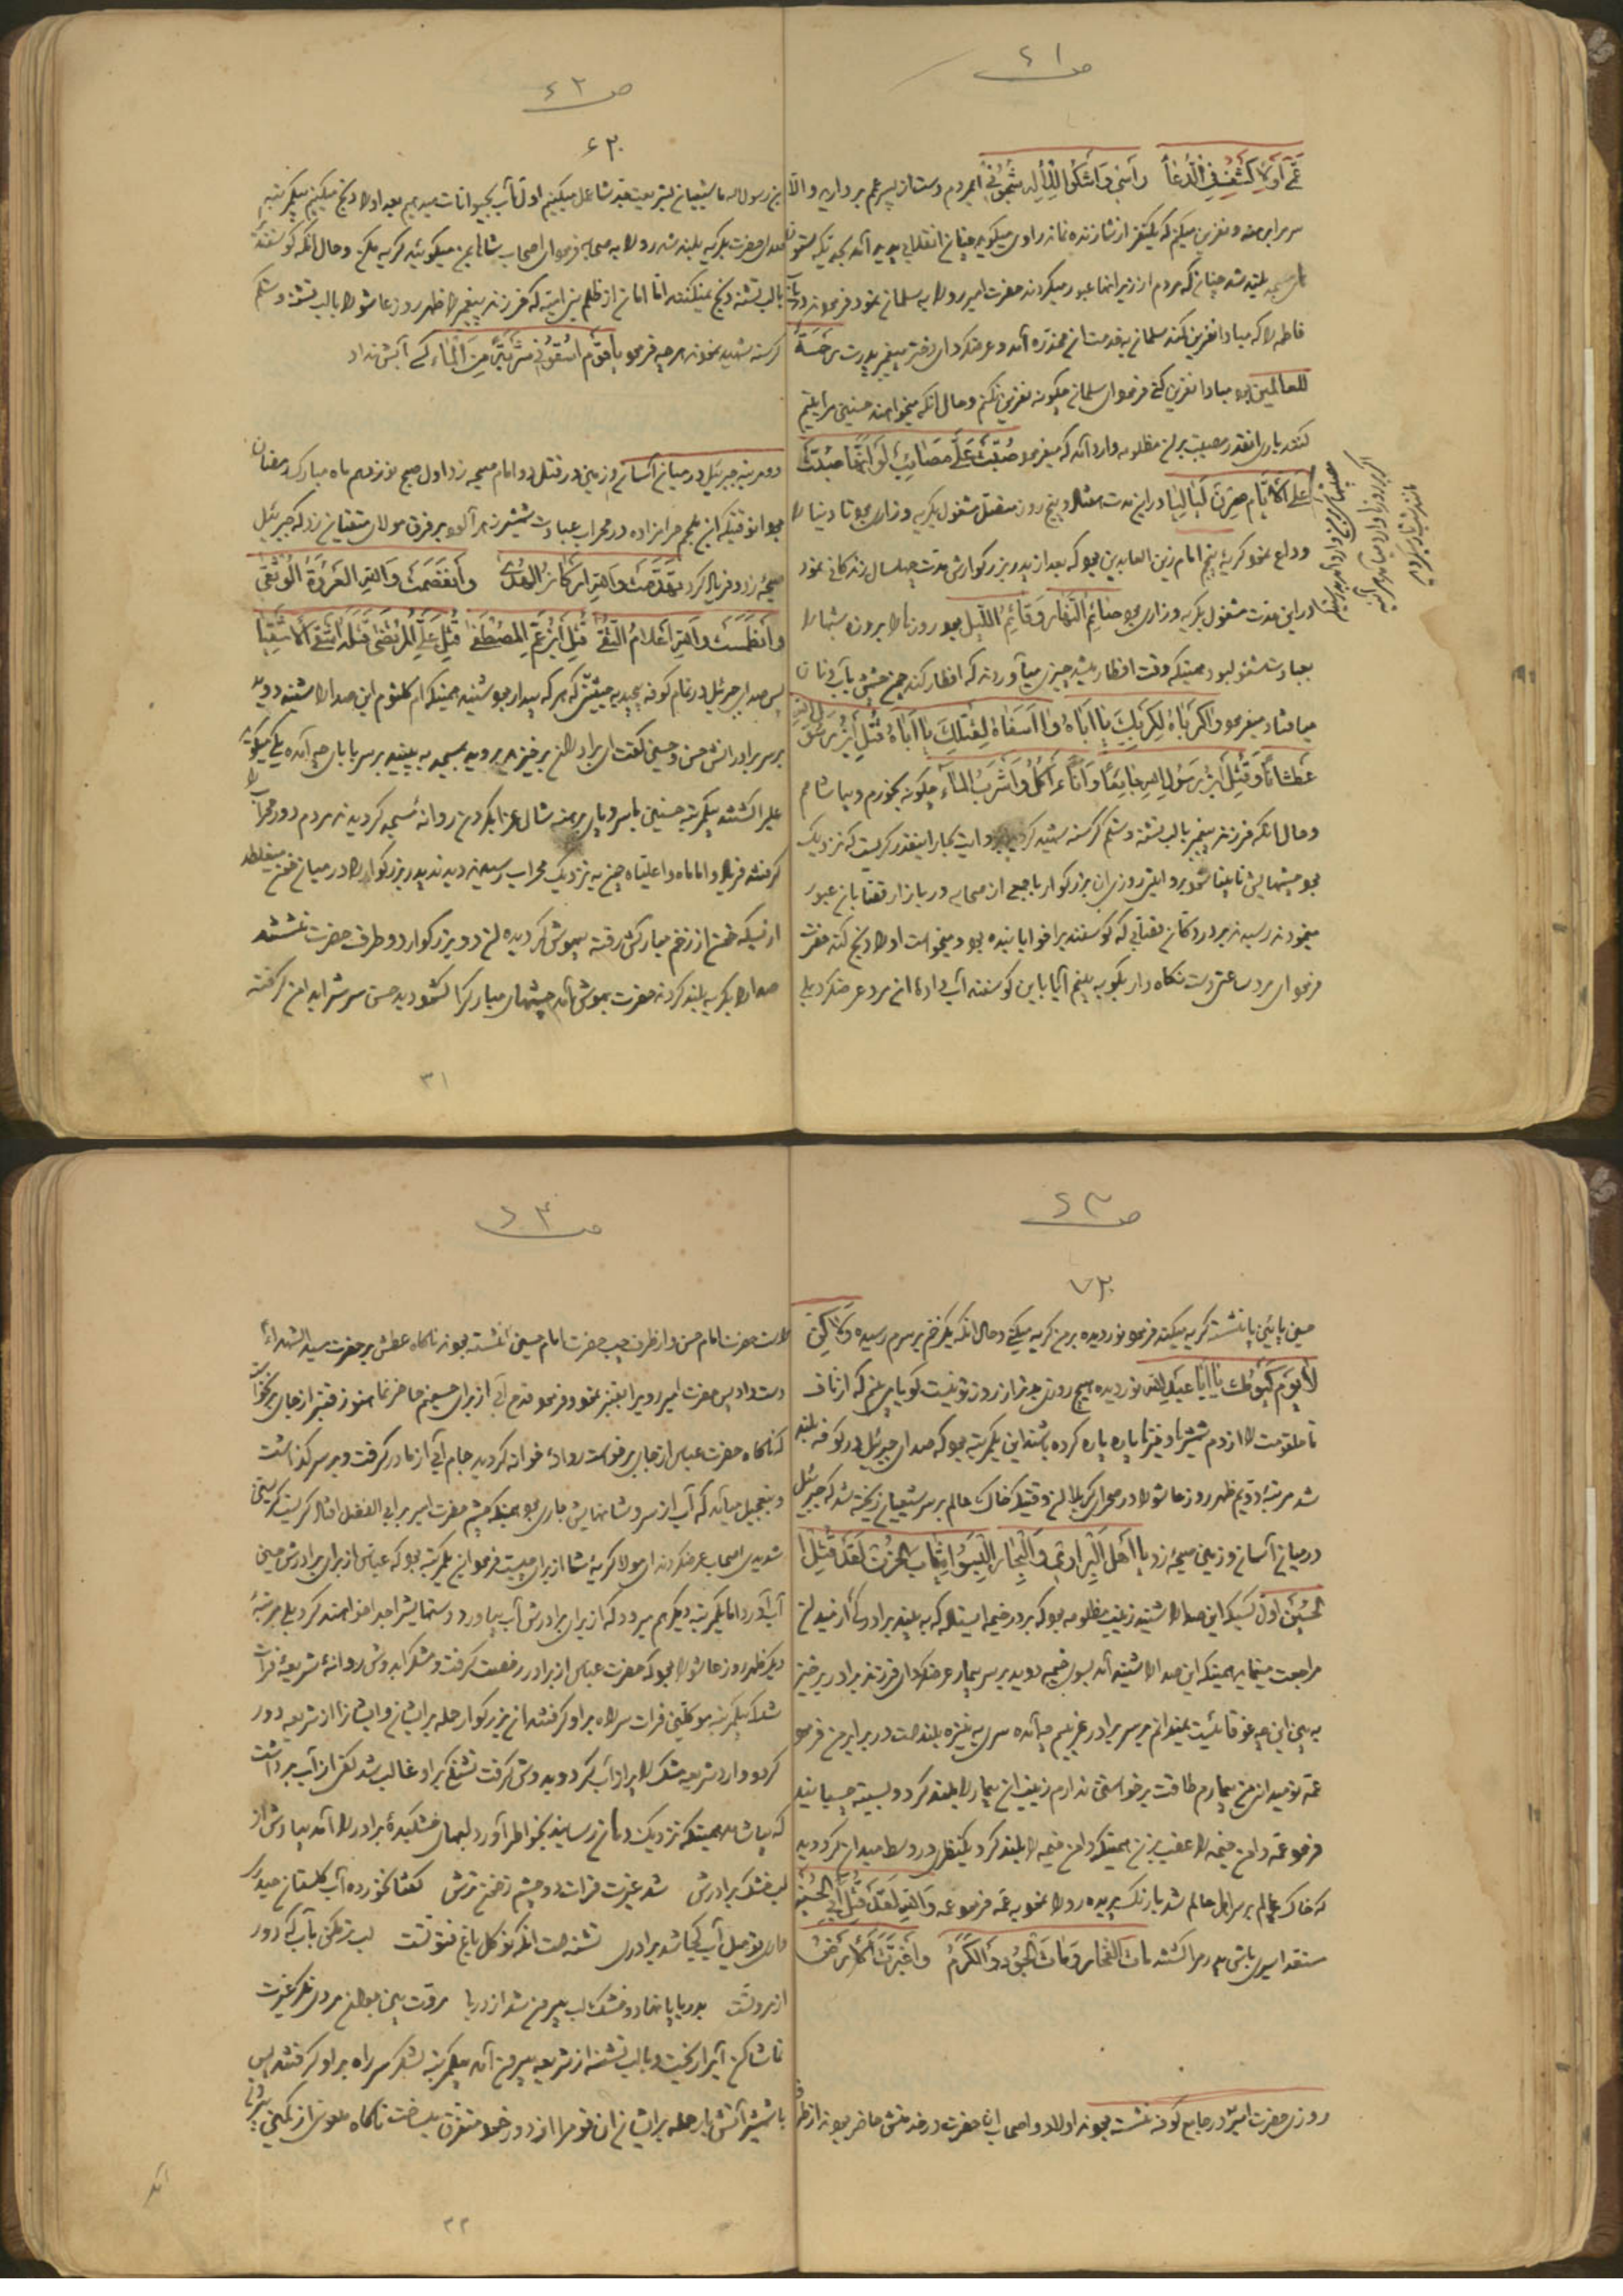 ص ۶۱
عَمّی اَوْ لَاَکْشِفُ فِی الدُّعا رأسی وَ اَشْکُو لِلْاِلهِ شُجُونی ایمردم دست از پسر عمم بردارید والّا
سر برهنه و نفرین میکنم که یکنفر از شما زنده نماند راوی میگوید چنان انقلابی پدید آمد بحدیکه ستون
مسجد بلند شد چنان که مردم از زیر آنها عبور میکردند حضرت امیر رو را به سلمان نمود فرمود
فاطمه را که مبادا نفرین کند سلمان به خدمت آن مخدّره آمد و عرضکرد ای دختر پیغمبر پدرت رَحْمَةً
للعالمین بود مبادا نفرین کنی فرمود ای سلمان چگونه نفرین نکنم و حال آنکه میخواهند حسنین مرا یتیم
کنند باری انقدر مصیبت بر آن مظلومه وارد آمد که میفرمود صُبَّتْ عَلَیَّ مَصائِبُ لَوْ اَنَّها صُبَّتْ
عَلَی الْاَیّامِ صِرْنَ لَیالِیا در این مدت هفتاد و پنج روز متصل مشغول بگریه و زاری بود تا دنیا را
وداع نمود گریهٔ پنجم امام زین العابدین بود که بعد از پدر بزرگوارش مدت چهلسال زندگانی نمود
در این مدت مشغول بگریه و زاری بود صائِمُ النَّهارِ وَ قائِمُ اللَّیْلِ بود روزها را بروزه شبها را
بعبادت مشغول بود همینکه وقت افطار میشد چیزی میآوردند که افطار کند چون چشمش بآب و نان
میافتاد میفرمود واکَرْباهُ لِکَرْبِکَ یا اَباهُ وا اَسَفاهُ لِقَتْلِکَ یا اَباهُ قُتِلَ ابْنُ رَسُولِ اللهِ
عَطْشاناً وَ قُتِلَ ابْنُ رَسُولِ اللهِ جایِعاً وَ اَنَا اَکُلُ وَ اَشْرَبُ الْماءَ چگونه بخورم و بیاشامم
و حال آنکه فرزند پیغمبر با لب تشنه و شکم گرسنه شهید کردید بروایت بحار اینقدر گریست که نزدیک
بود چشمهایش نابینا شود بروایتی روزی آن بزرگوار با جمعی از صحابه در بازار قصّابان عبور
مینمودند رسیدند بر در دکان قصّابی که گوسفندیرا خوابانیده بود و میخواست او را ذبح کند حضرت
فرمود ای مرد ساعتی دست نگاه دار بگو به بینم آیا باین گوسفند آب دادهٔ آن مرد عرضکرد بلی
ص ۶۲
۶۳۰
یابن رسول الله ما شیعیان بشریعت جد شما عمل میکنیم اول آب بحیوانات میدهیم بعد او را ذبح میکنیم
صدای حضرت بگریه بلند شد رو را به صحابه فرمود ای اصحاب شما بمن میگوئید گریه مکن و حال آنکه گوسفند
با لب تشنه ذبح نمیکنند امّا امان از ظلم بنی امیّه که فرزند پیغمبر را ظهر روز عاشورا با لب تشنه و شکم
گرسنه شهید نمودند هرچه فرمود یا قَوْمِ اسْقُونی شَرْبَةً مِنَ الْماءِ کسی آبش نداد
دو مرتبه جبرئیل در میان آسمان و زمین در قتل دو امام صیحه زد اول صبح نوزدهم ماه مبارک رمضان
بود انوقتیکه ابن ملجم حرامزاده در محراب عبادت شمشیر زهر آلود بر فرق مولای متقیان زد که جبرئیل
صیحه زد و فریاد کرد تَهَدَّمَتْ وَاللهِ اَرْکانُ الْهُدی وَ انْفَصَمَتْ وَاللهِ الْعُرْوَةُ الْوُثْقی
وَ انْطَمَسَتْ وَاللهِ اَعْلامُ التُّقی قُتِلَ ابْنُ عَمِّ الْمُصْطَفی قُتِلَ عَلِیُّ الْمُرْتَضی قَتَلَهُ اَشْقَی الْاَشْقِیا
پس صدای جبرئیل در تمام کوفه پیچید به حیثیّتی که هر که بیدار بود شنید همینکه ام کلثوم این صدا را شنید دوید
بر سر برادرانش حسن و حسین گفت ای برادران برخیزید بروید بمسجد به بینید بر سر بابای چه آمده یکی میگوید
علی را کشتند یکمرتبه حسنین با سر و پای برهنه شال عزا بگردن روانه مسجد گردیدند مردم دور محراب را
گرفته فریاد واماماه واعلیّاه چون به نزدیک محراب رسیدند دیدند پدر بزرگوار را در میان خون میغلطد
از بسکه خون از زخم مبارکش رفته بیهوش گردیده آن دو بزرگوار دو طرف حضرت نشستند
صدا را بگریه بلند کردند حضرت بهوش آمد چشمهای مبارکرا گشود دید حسن سرشرا بدامن گرفته
۳۱
ص ۶۳
۷۳۰
حسین پائین پا نشسته گریه میکند فرمود نوردیده بر من گریه میکنی و حال آنکه یک زخم بر سرم رسیده وَ لکِنْ
لا یَوْمَ کَیَوْمِکَ یا اَبا عَبْدِاللهِ نوردیده هیچ روزی بدتر از روز تو نیست گویا می بینم که از ناف
تا حلقومت را از دم شمشیر و خنجر پاره پاره کرده باشند این یکمرتبه بود که صدای جبرئیل در کوفه بلند
شد مرتبهٔ دویم ظهر روز عاشورا در صحرای کربلا آن وقتیکه خاک عالم بر سر شیعیان ریخته شد که جبرئیل
در میان آسمان و زمین صیحه زد یا اَهْلَ الْبَراری وَ الْبِحارِ اِلْبِسُوا ثِیابَ الْحُزْنِ لَقَدْ قُتِلَ
الْحُسَیْنُ اول کسیکه این صدا را شنید زینب مظلومه بود که بر در خیمه ایستاده که به بیند برادر
مراجعت مینماید همینکه این صدا را شنید آمد بسوی خیمه دوید بر سر بیمار عرضکرد ای فرزند برادر برخیز
به بین این چه غوغائیست نمیدانم بر سر برادر غریبم چه آمده سری به نیزه بلند است در برابر من فرمود
عمّه تو میدانی من بیمارم طاقت برخواستن ندارم زینب آن بیمار را بلند کرد و بسینه چسبانید
فرمود عمّه دامن خیمه را عقب بزن همینکه دامن خیمه را بلند کرد یکنظر در وسط میدان کرد دید
که خاک عالم بر سر اهل عالم شد با رنگ پریده رو را نمود به عمّه فرمود عمّه وَاللهِ لَقَدْ قُتِلَ اَبِی الْحُسَیْنُ
مستعد اسیری باش پدرم را کشتند ماتَ الْفَخارُ وَ ماتَ الْجُودُ وَ الْکَرَمُ وَ اغْبَرَّتِ الْاَرْضُ
روزی حضرت امیر در جامع کوفه نشسته بودند اولاد و اصحاب انحضرت در خدمتش حاضر بودند از طرف
ص ۶۴
راست حضرت امام حسن و از طرف چپ حضرت امام حسین نشسته بودند ناگاه عطش بر حضرت سید الشهداء
دست داد پس حضرت امیر رو را بقنبر نمود و فرمود قدح آبی از برای حسینم حاضر نما هنوز قنبر از جای برنخواست
که ناگاه حضرت عباس از جای برخواست روانهٔ خانه گردید جام آبی از مادر گرفت و بر سر گذاشت
و بتعجیل میآمد که آب از سر و شانهایش جاری بود همینکه چشم حضرت امیر بر ابی الفضل افتاد گریست گریستنی
شدیدی اصحاب عرضکردند ای مولا گریهٔ شما از برای چیست فرمود این یکمرتبه بود که عباس از برای برادرش حسین
آب آورد اما یکمرتبه دیگر هم میرود که از برای برادرش آب بیاورد و دستهایشرا جدا خواهند کرد بلی مرتبهٔ
دیگر ظهر روز عاشورا بود که حضرت عباس از برادر رخصت گرفت و مشکرا بدوش روانهٔ شریعهٔ فرات
شد که یکمرتبه موکلین فرات سر راه بر او گرفتند آن بزرگوار حمله بر ایشان و ایشانرا از شریعه دور
کرد و وارد شریعه مشک را پر از آب کرد و بدوش گرفت تشنگی بر او غالب شد کفی از آب برداشت
که بیاشامد همینکه نزدیک دهان رسانید بخاطر آورد لبهای خشکیدهٔ برادر را آمد بیادش از
لب خشک برادرش شد غیرت فرات دو چشم ز خون ترش گفتا نخورده آب گلستان حیدری
تشنه است انکه نو گل باغ فتوّتست لب تر مکن بآب که دور
از مروتست بدریا پا نهاد و خشک لب بیرون شد از دریا مروت بین جوانمردی نگر غیرت
تماشا کن آبرا ریخت و با لب تشنه از شریعه بیرون آمد یکمرتبه لشکر سر راه بر او گرفتند پس
با شمشیر آتش بار حمله بر ایشان آن قوم را از دور خود متفرق ساخت ناگاه ملعونی از کمین بیرون
آمد
۳۲